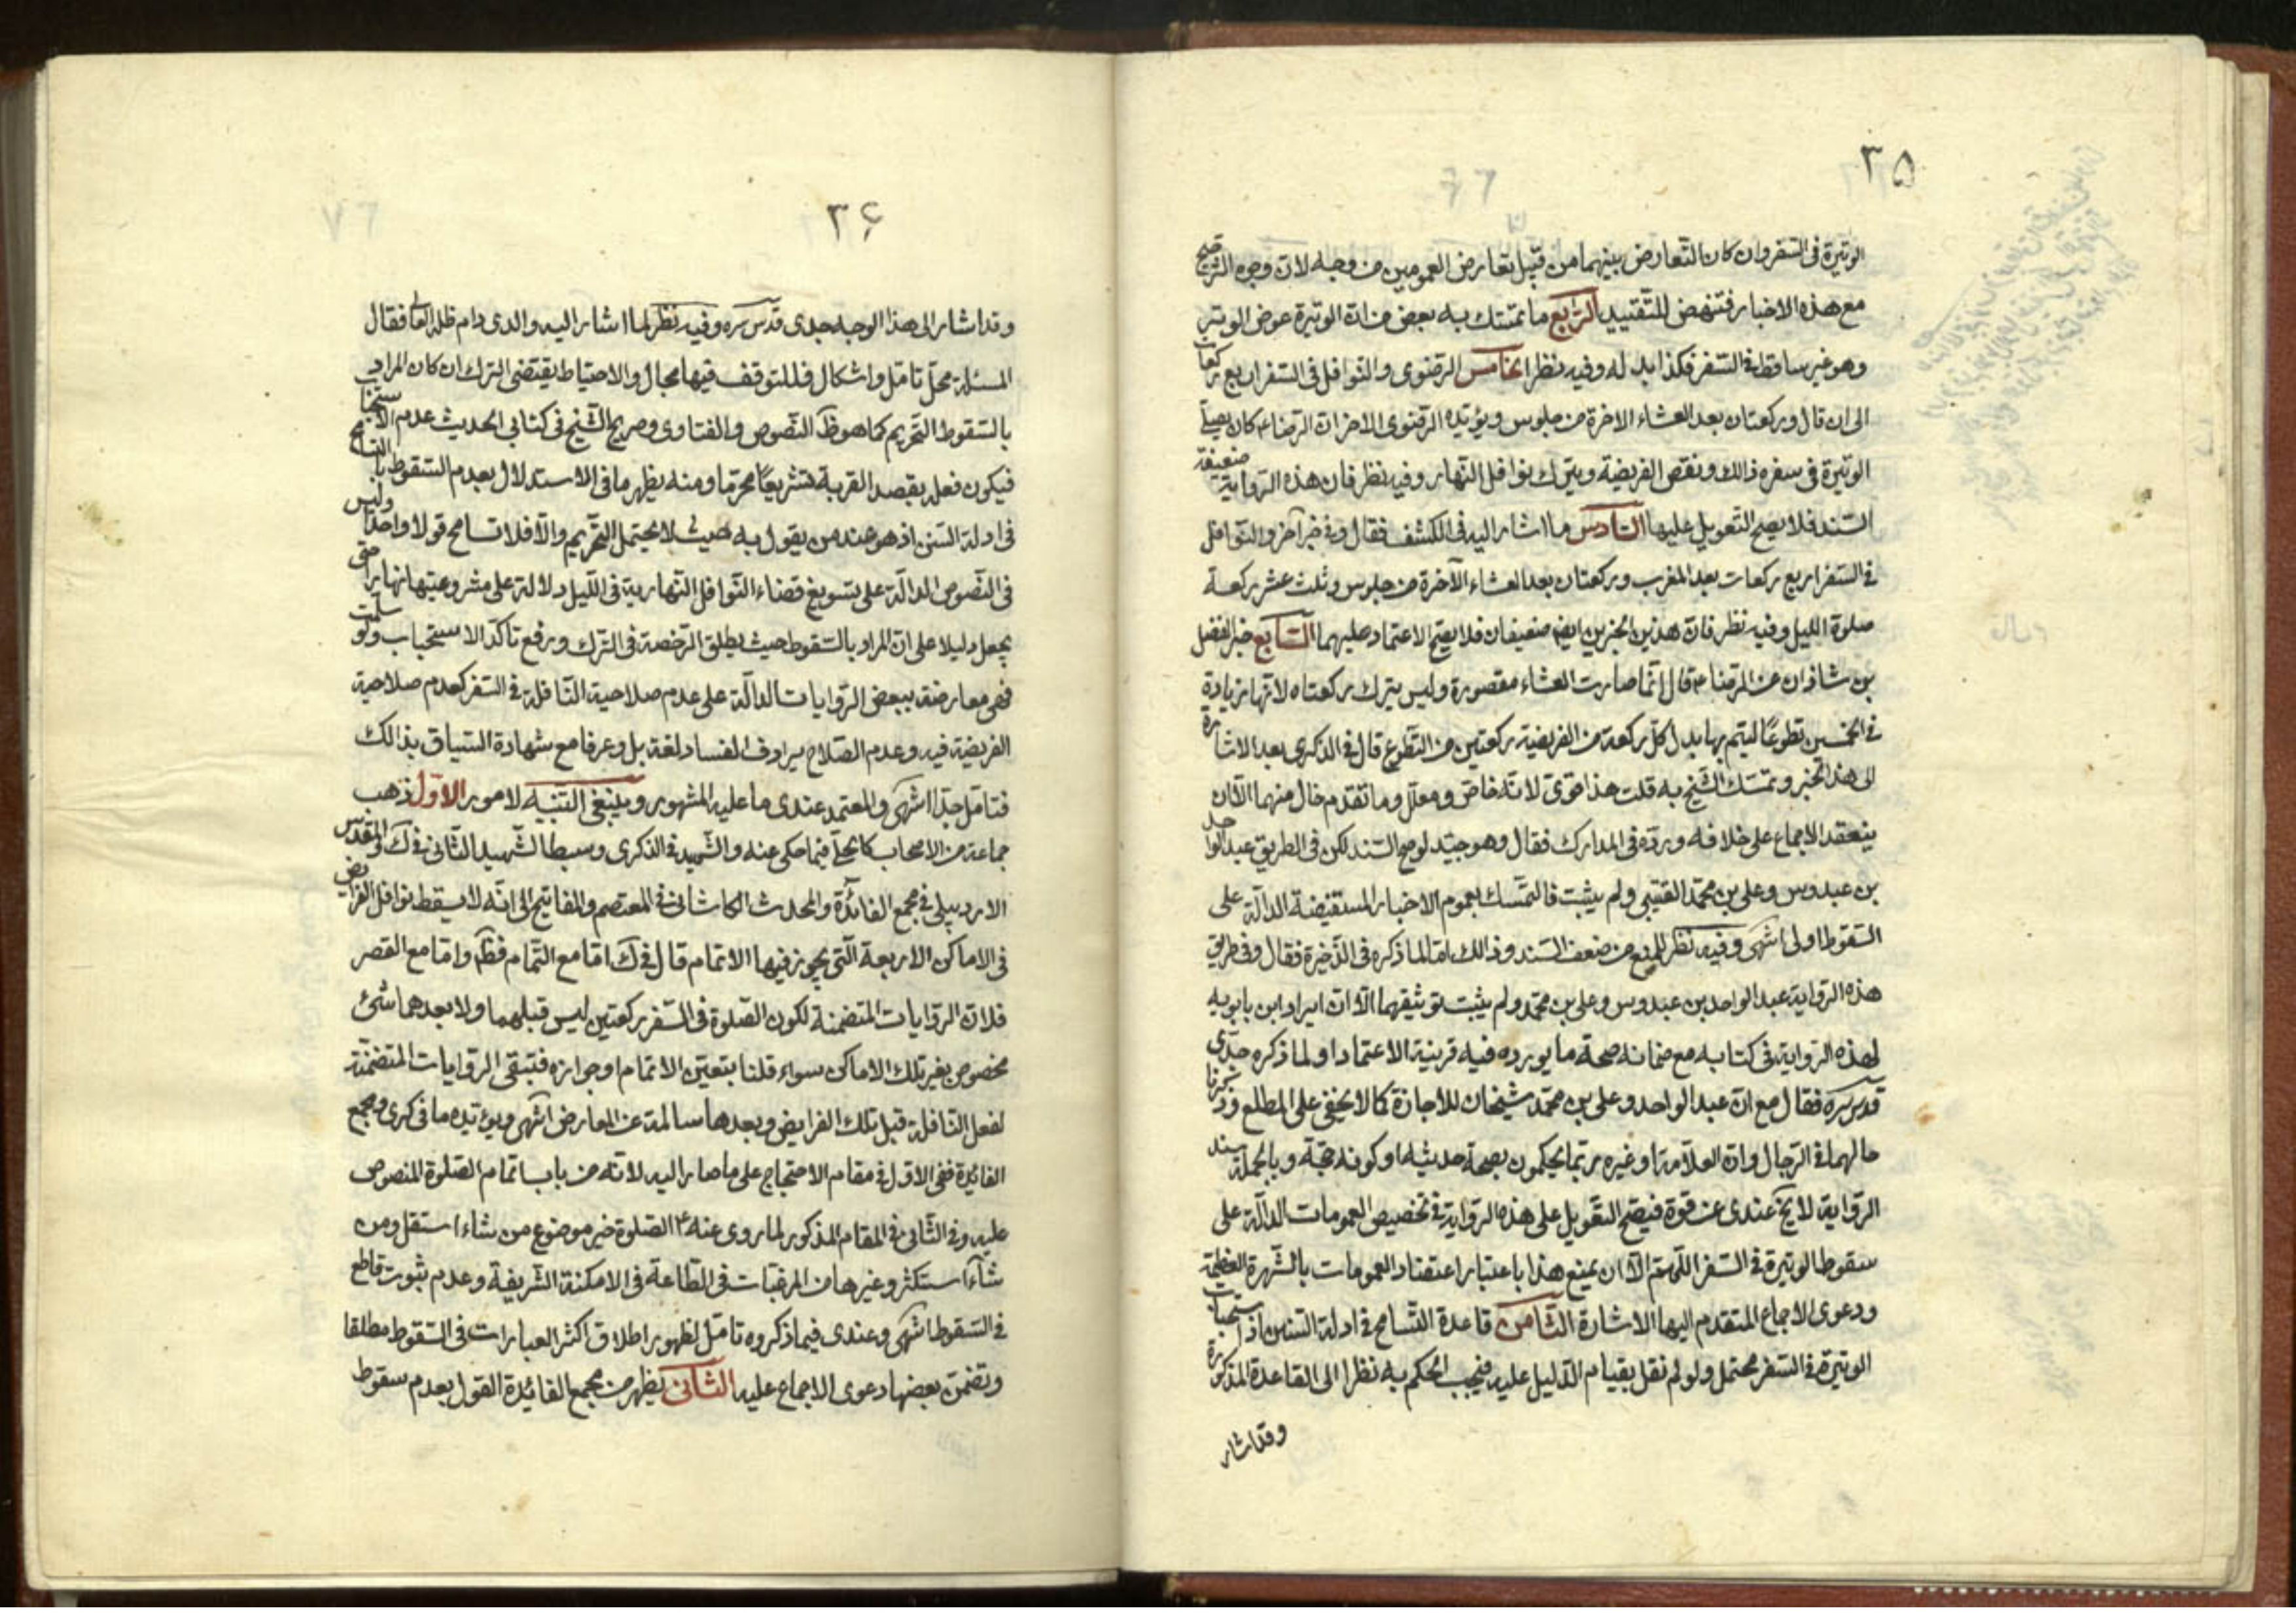 ٣٥
الوتيرة فى السفر وان كان التعارض بينهما من قبيل تعارض العمومين من وجه لان وجوه الترجيح
مع هذه الاخبار فتنهض للتقييد الرابع ما تمسك به بعض من ان الوتيرة عوض الوتر
وهو غير ساقط فى السفر فكذا بدله وفيه نظر الخامس الرضوى والنوافل فى السفر اربع ركعات
الى ان قال وركعتان بعد العشاء الاخرة من جلوس ويؤيده الرضوى الاخر ان الرضا ع كان يصلى
الوتيرة فى سفره ذالك ونقص الفريضة ويترك نوافل النهار وفيه نظر فان هذه الرواية ضعيفة
السند فلا يصح التعويل عليها السادس ما اشار اليه فى الكشف فقال وفى خبر آخر والنوافل
فى السفر اربع ركعات بعد المغرب وركعتان بعد العشاء الآخرة من جلوس وثلث عشر ركعة
صلوة الليل وفيه نظر فان هذين الخبرين ايضا ضعيفان فلا يصح الاعتماد عليهما السابع خبر الفضل
بن شاذان عن الرضا ع قال انما صارت العشاء مقصورة وليس يترك ركعتاه لانها زيادة
فى الخمسين تطوعا ليتم بها بدل كل ركعة من الفريضة ركعتين من التطوع قال فى الذكرى بعد الاشارة
الى هذا الخبر وتمسك الشيخ به قلت هذا قوى لانه خاص ومعلل وما تقدم خال منهما الا ان
ينعقد الاجماع على خلافه ورده فى المدارك فقال وهو جيد لو صح السند لكن فى الطريق عبد الواحد
بن عبدوس وعلى بن محمد القتيبى ولم يثبت فالتمسك بعموم الاخبار المستفيضة الدالة على
السقوط اولى انتهى وفيه نظر للمنع من ضعف السند وذالك اما لما ذكره فى الذخيرة فقال وفى طريق
هذه الرواية عبد الواحد بن عبدوس وعلى بن محمد ولم يثبت توثيقهما الا ان ايراد ابن بابويه
لهذه الرواية فى كتابه مع ضمانه صحة ما يورده فيه قرينة الاعتماد او لما ذكره جدى
قدس سره فقال مع ان عبد الواحد وعلى بن محمد شيخان للاجازة كما لا يخفى على المطلع وذكرنا
حالهما فى الرجال وان العلامة او غيره ربما يحكمون بصحة حديثه او كونه حجة وبالجملة سند
الرواية لا يخ عندى عن قوة فيصح التعويل على هذه الرواية فى تخصيص العمومات الدالة على
سقوط الوتيرة فى السفر اللهم الا ان يمنع هذا باعتبار اعتضاد العمومات بالشهرة العظيمة
ودعوى الاجماع المتقدم اليها الاشارة الثامن قاعدة التسامح فى ادلة السنن اذ استحباب
الوتيرة فى السفر محتمل ولو لم نقل بقيام الدليل عليه فيجب الحكم به نظرا الى القاعدة المذكورة
وقد اشار
٣۶
وقد اشار الى هذا الوجه جدى قدس سره وفيه نظر لما اشار اليه والدى دام ظله العالى فقال
المسئلة محل تامل واشكال فللتوقف فيها مجال والاحتياط يقتضى الترك ان كان المراد
بالسقوط التحريم كما هو ظ النصوص والفتاوى وصريح الشيخ فى كتابى الحديث عدم الاستحباب
فيكون فعله بقصد القربة تشريعا محرما ومنه يظهر ما فى الاستدلال بعدم السقوط بالتسامح
فى ادلة السنن اذ هو عند من يقول به حيث لا يحتمل التحريم والا فلا تسامح قولا واحدا وليس
فى النصوص الدالة على تسويغ قضاء النوافل النهارية فى الليل دلالة على مشروعيتها نهارا حتى
يجعل دليلا على ان المراد بالسقوط حيث يطلق الرخصة فى الترك ورفع تاكد الاستحباب ولو سلمت
فهى معارضة ببعض الروايات الدالة على عدم صلاحية النافلة فى السفر كعدم صلاحية
الفريضة فيه وعدم الصلاح يرادف الفساد لغة بل وعرفا مع شهادة السياق بذالك
فتامل جدا انتهى والمعتمد عندى ما عليه المشهور وينبغى التنبيه لامور الاول ذهب
جماعة من الاصحاب كالحلى فيما حكى عنه والشهيد فى الذكرى وسبط الشهيد الثانى فى ك والمقدس
الاردبيلى فى مجمع الفائدة والمحدث الكاشانى فى المعتصم والمفاتيح الى انه لا يسقط نوافل الفرايض
فى الاماكن الاربعة التى يجوز فيها الاتمام قال فى ك اما مع التمام فظ واما مع القصر
فلان الروايات المتضمنة لكون الصلوة فى السفر ركعتين ليس قبلهما ولا بعدهما شئ
مخصوص بغير تلك الاماكن سواء قلنا بتعين الاتمام او جوازه فتبقى الروايات المتضمنة
لفعل النافلة قبل تلك الفرايض وبعدها سالمة عن المعارض انتهى ويؤيده ما فى كرى ومجمع
الفائدة ففى الاول فى مقام الاحتجاج على ما صار اليه لانه من باب اتمام الصلوة المنصوص
عليه وفى الثانى فى المقام المذكور لما روى عنه ع الصلوة خير موضوع من شاء استقل ومن
شاء استكثر وغيرها من المرغبات فى الطاعة فى الامكنة الشريفة وعدم ثبوت قاطع
فى السقوط انتهى وعندى فيما ذكروه تامل لظهور اطلاق اكثر العبارات فى السقوط مطلقا
وتضمن بعضها دعوى الاجماع عليه الثانى يظهر من مجمع الفائدة القول بعدم سقوط